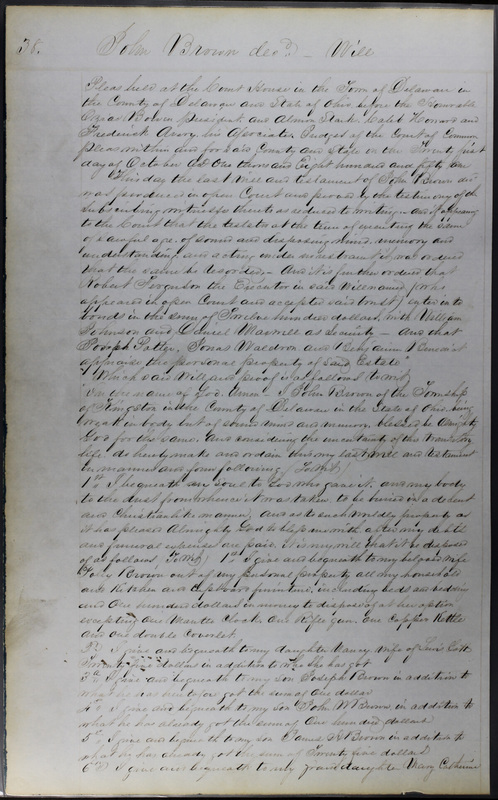 38. John Brown decd. — Will
Pleas held at the Court House in the Town of Delaware in
the County of Delaware and State of Ohio before the Honorable
Ozias Bowen President and Almon Stark Caleb Howard and
Frederick Avery his Associate Judges of the Court of Common
pleas within and for said County and State on the Twenty first
day of October AD One thousand Eight hundred and forty
This day the last Will and testament of John Brown decd
was produced in open Court and proved by the testimony of the
subscribing witnesses thereto as reduced to writing — And it appearing
to the Court that the testator at the time of executing the same
of lawful age, of sound and disposing mind, memory and
understanding and acting under no restraint, it was ordered
that the same be recorded — And it is further ordered that
Robert Ferguson the Executor in said Will named (who
appeared in open Court and accepted said trust) enter into
bonds in the sum of Twelve hundred dollars, with William
Johnson and Daniel Maxwell as Security — And that
Joseph Patten, Jonas Waldron and Benjamin Benedict
appraise the personal property of said Estate"
Which said Will and proof is as follows To wit)
"In the name of God. Amen. I John Brown of the Township
of Kingston in the County of Delaware in the State of Ohio, being
weak in body but of sound mind and memory blessed be Almighty
God for the same. And considering the uncertainty of this transitory
life do hereby make and ordain this my last Will and testament
in manner and form following To Wit)
1st I bequeath my soul to God who gave it, and my body
to the dust from whence it was taken to be buried in a decent
and Christianlike manner, And as to such worldly property as
it has pleased Almighty God to bless me with, after my debts
and funeral expenses are paid, it is my will that it be disposed
of as follows To Wit) 1st I give and bequeath to my beloved wife
Polly Brown out of my personal property all my household
and kitchen and furniture, including beds and bedding
and One hundred dollars in money to dispose of at her option
excepting One Mantle Clock, One Rifle gun, One Copper Kettle
and One double Coverlet
2nd I give and bequeath to my daughter Nancy wife of
Twenty five dollars in addition to what she has got
3rd I give and bequeath to my son Joseph Brown in addition to
what he has heretofore got the sum of One dollar
4th I give and bequeath to my son John W Brown in addition to
what he has already got the sum of One hundred dollars
5th I give and bequeath to my son Brown in addition to
what he has already got the sum of Twenty five dollars
6th I give and bequeath to my grand daughter Mary Catharine